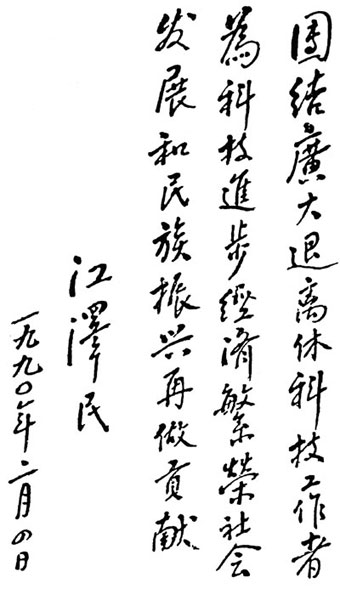 团结廣大退离休科技工作者
為科技進步經济繁榮社会
发展和民族振兴再做贡献
江澤民
一九九〇年二月四日